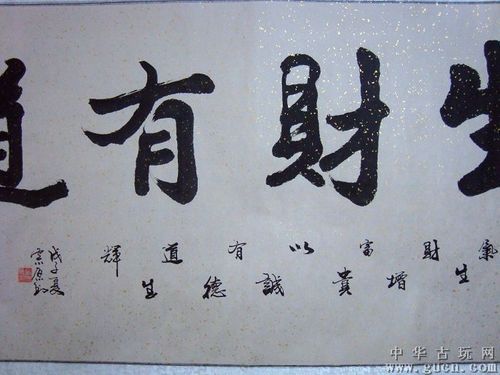 生財有道
氣生財增富貴以誠有德道生輝
戊子夏
中华古玩网
www.gucn.com